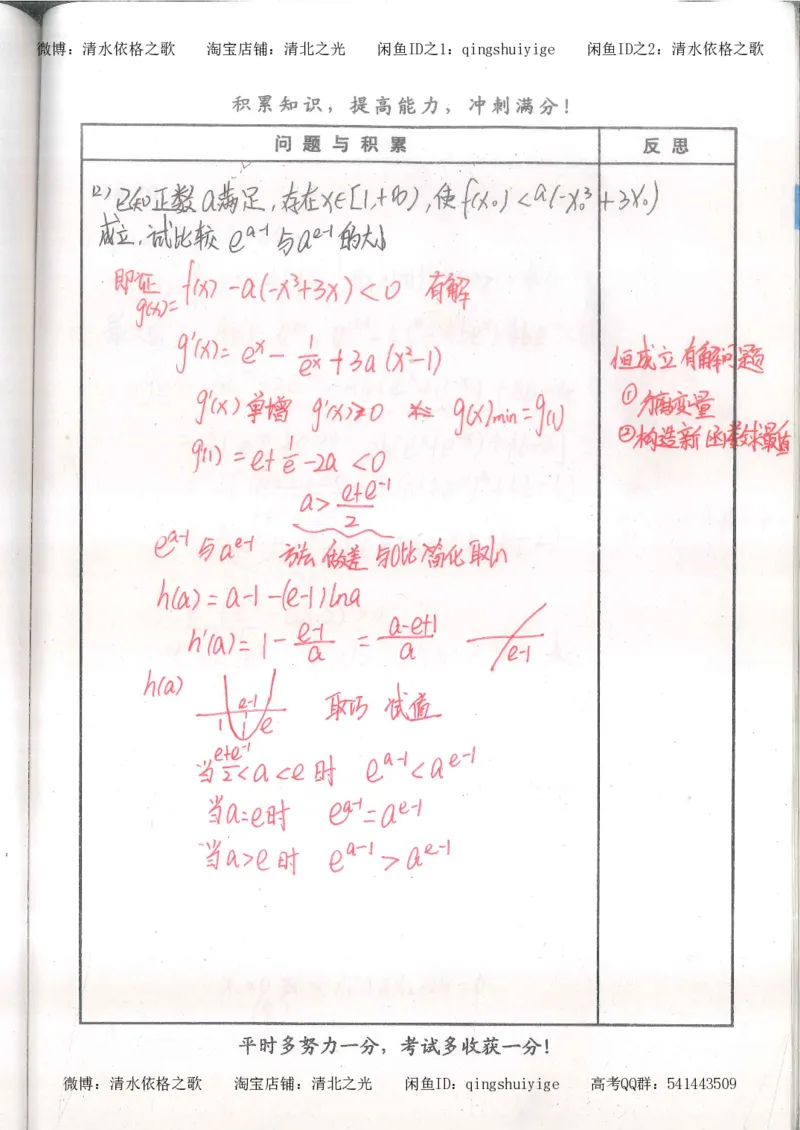 微博：清水依格之歌 淘宝店铺：清北之光 闲鱼ID之1：qingshuiyige 闲鱼ID之2：清水依格之歌
积累知识，提高能力，冲刺满分！
问题与积累 反思
(2)已知正数a满足,存在x∈[1,+∞),使f(x₀)<a(-x₀³+3x₀)
成立,试比较 e^{a-1} 与 a^{e-1} 的大小
即证 f(x)-a(-x³+3x)<0 有解
g(x)=
g'(x)=e^x - 1/e^x +3a(x²-1)
g'(x)单增 g'(x)≥0 g(x)min=g(1)
g(1)=e+1/e-2a<0
a> (e+e^{-1})/2
e^{a-1}与a^{e-1} 方法 做差 与0比 简化 取ln
h(a)=a-1-(e-1)lna
h'(a)=1-(e-1)/a = (a-e+1)/a e-1
h(a) 1 e-1 e 取巧 试值
当(e+e^{-1})/2<a<e时 e^{a-1}<a^{e-1}
当a=e时 e^{a-1}=a^{e-1}
当a>e时 e^{a-1}>a^{e-1}
恒成立 有解问题
①分离变量
②构造新函数求最值
平时多努力一分，考试多收获一分！
微博：清水依格之歌 淘宝店铺：清北之光 闲鱼ID：qingshuiyige 高考QQ群：541443509